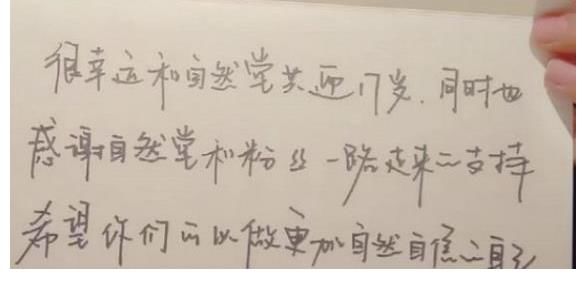 很幸运和自然堂共迎17岁.同时也
感谢自然堂和粉丝一路走来的支持
希望你们可以做更加自然自信的自己